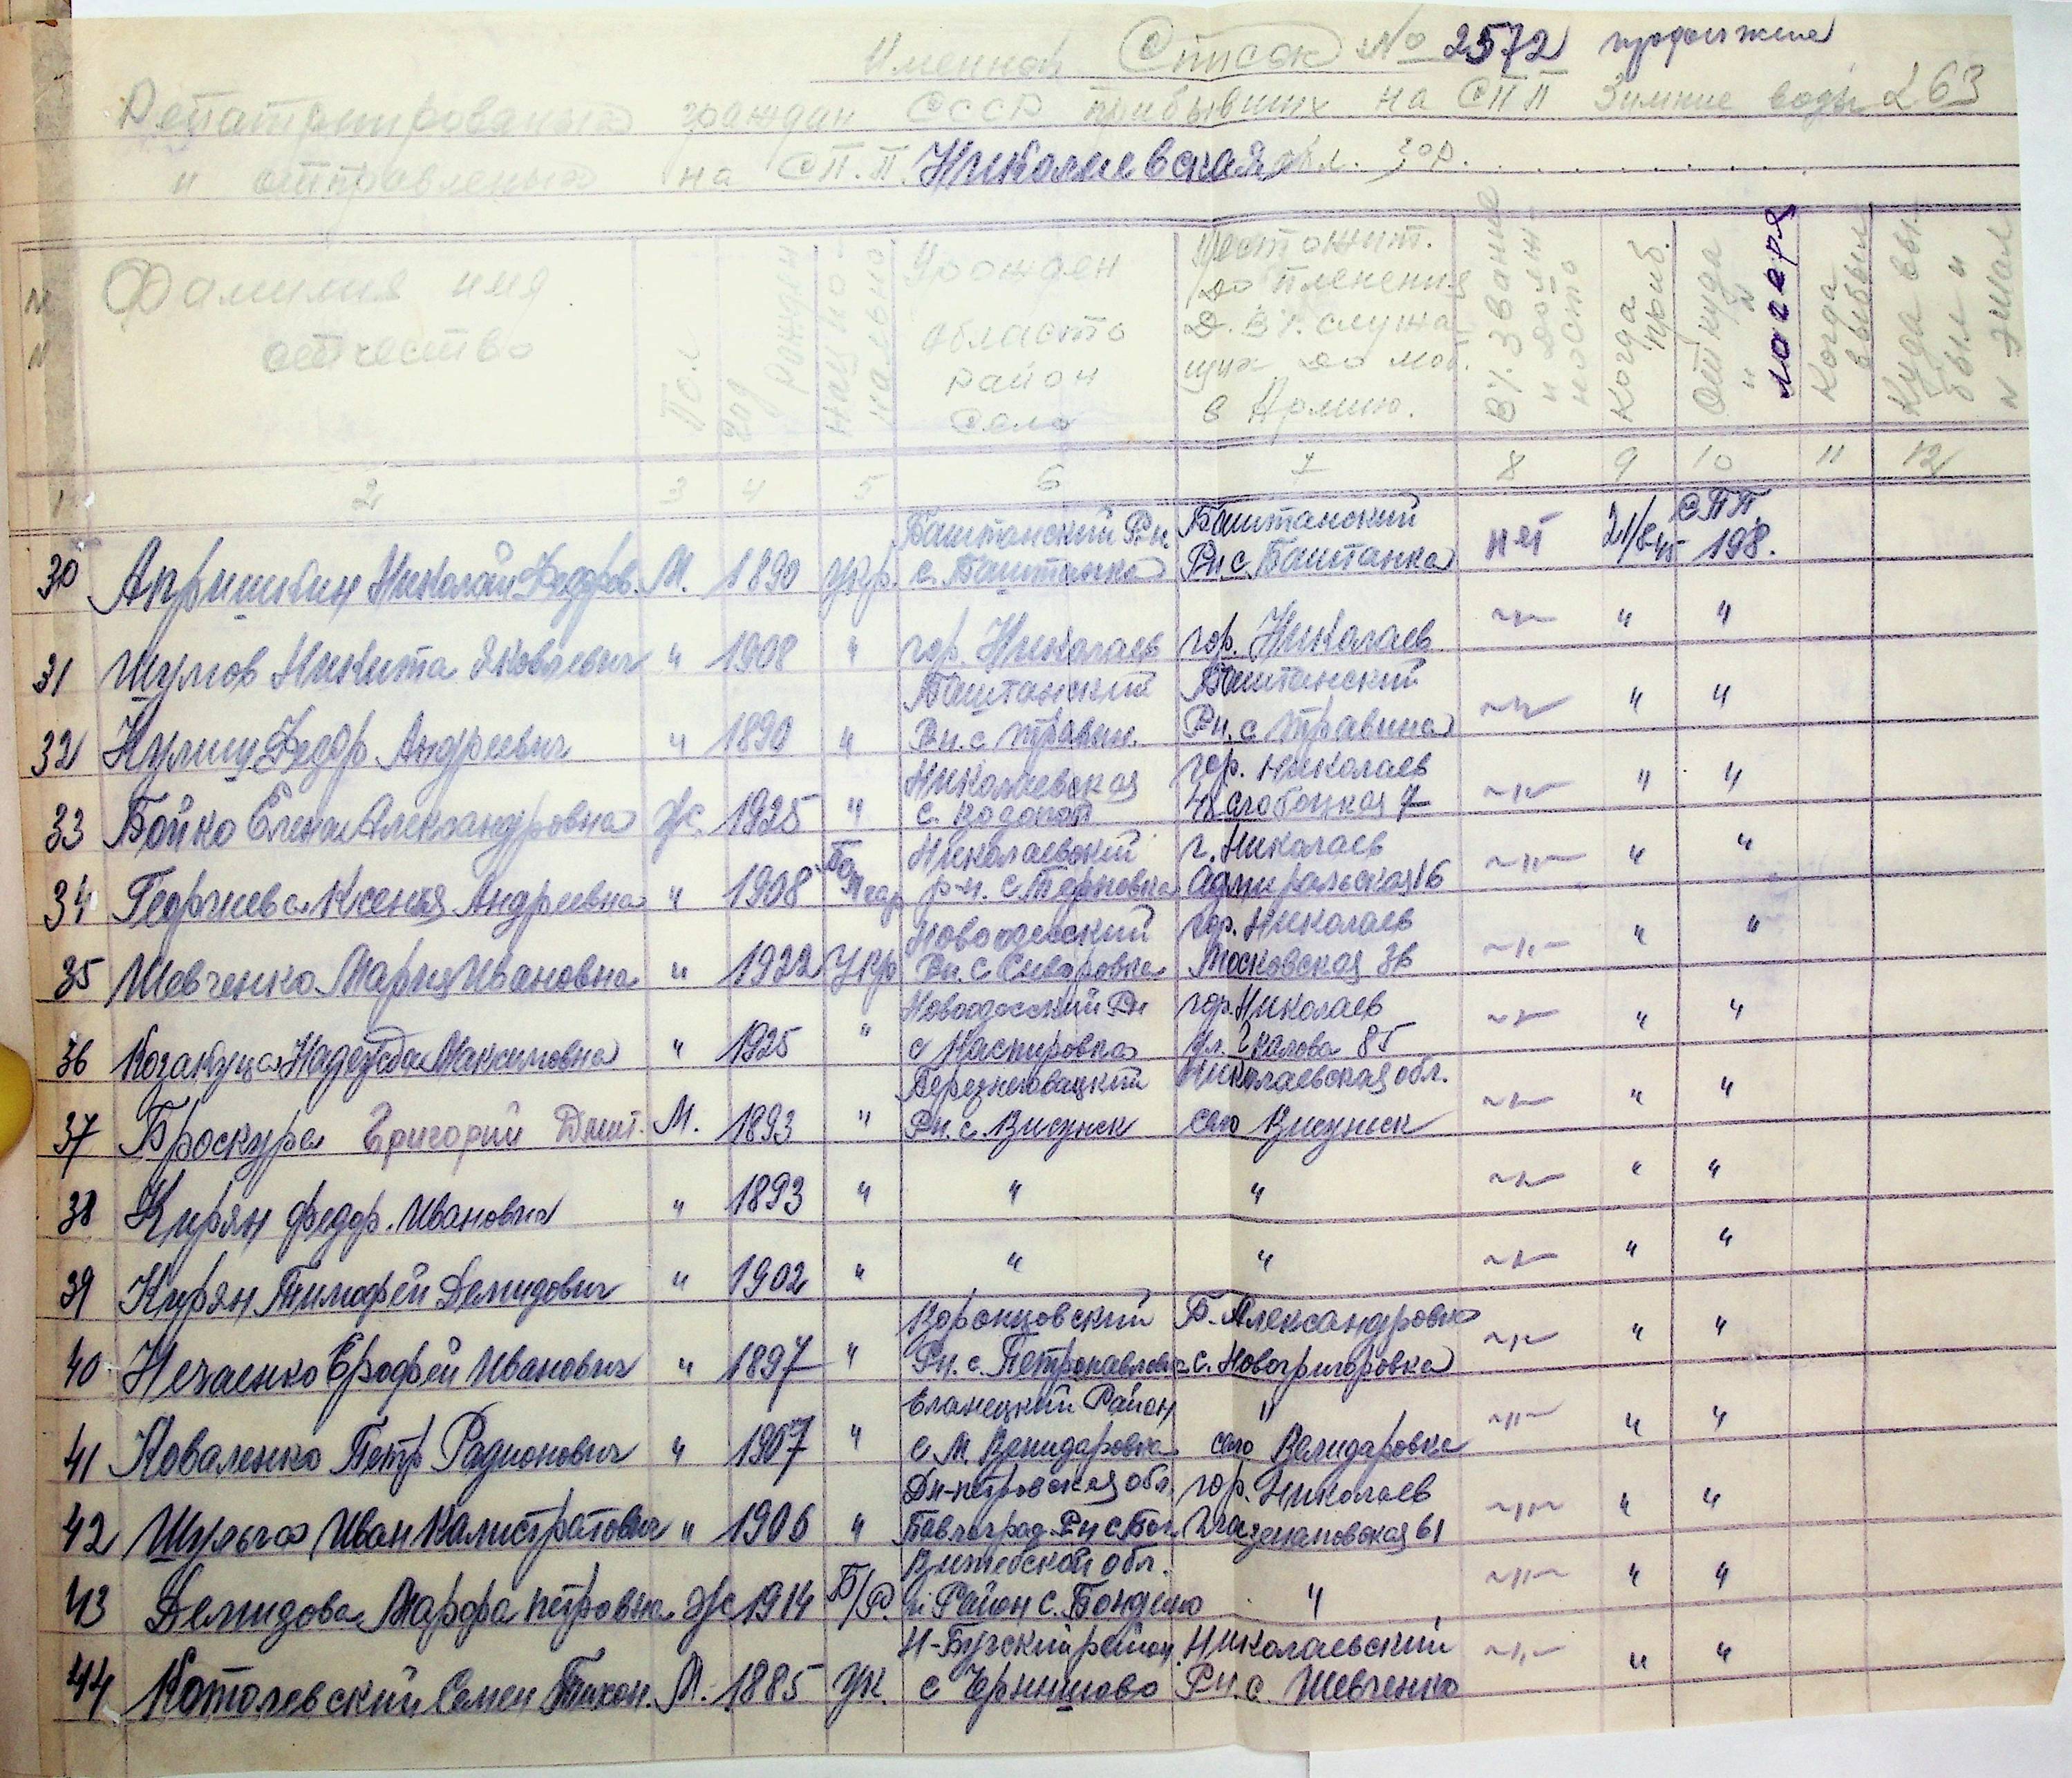 Именной Список № 2572 продолжение
Репатрированых граждан СССР прибывших на СПП Зимние воды 263
и отправленых на СП.П. Николаевская обл. гор.
N N Фамилия имя отчество Пол год рожден Национально Урожден область район село Местожит. до пленения Д. В/. служащих до моб. в Армию. В/. Звание и должность Когда приб. Откуда и N лагеря Когда выбыл Куда выбыл и N эшал
1 2 3 4 5 6 7 8 9 10 11 12
Баштанский Рн. Баштанский СПП
30 Апришкин Николай Федоров. М. 1890 укр. с. Баштанка Рн. с Баштанка нет 21/8-45 198.
31 Шумов Никита Яковлевич " 1908 " гор. Николаев гор. Николаев -"- " "
Баштанский Баштанский
32 Кулиш Федор Андреевич " 1890 " Рн. с Рн. с -"- " "
Николаевская гор. Николаев
33 Бойко Елена Александровна Ж. 1925 " с. Водопой Слободская 7 -"- " "
Николаевский г. Николаев
34 Георгиева Ксения Андреевна " 1908 р-н. с. Терновка Адмиральская 16 -"- " "
Новоодесский гор. Николаев
35 Шевченко Мария Ивановна " 1922 Укр Рн. с. Московская 36 -"- " "
Новоодесский Рн гор. Николаев
36 Надежда Максимовна " 1925 " с Касперовка ул. Чкалова 85 -"- " "
Березнеговацкий Николаевская обл.
37 Проскура Григорий Дмит. М. 1893 " Рн. с. Висунск село Висунск -"- " "
38 Кирян федор. Иванович " 1893 " " " -"- " "
39 Кирян Тимофей Демидович " 1902 " " " -"- " "
Воронцовский Б. Александровка
40 Нечаенко Ерофей Иванович " 1897 " Рн. с. Петропавловка с. Новогригоровка -"- " "
Еланецкий Район "
41 Коваленко Петр Радионович " 1907 " с М. Венидаровка село -"- " "
Дн-петровская обл. гор. Николаев
42 Шульга Иван Калистратович " 1906 " Павлоград. Рн с 61 -"- " "
Витебской обл.
43 Демидова Марфа петровна Ж 1914 Б/Р. Район с. " -"- " "
Н-Бугский район. Николаевский
44 Котолевский Семен Тихон. М. 1885 Ук. с Рн. с. Шевченко -"- " "